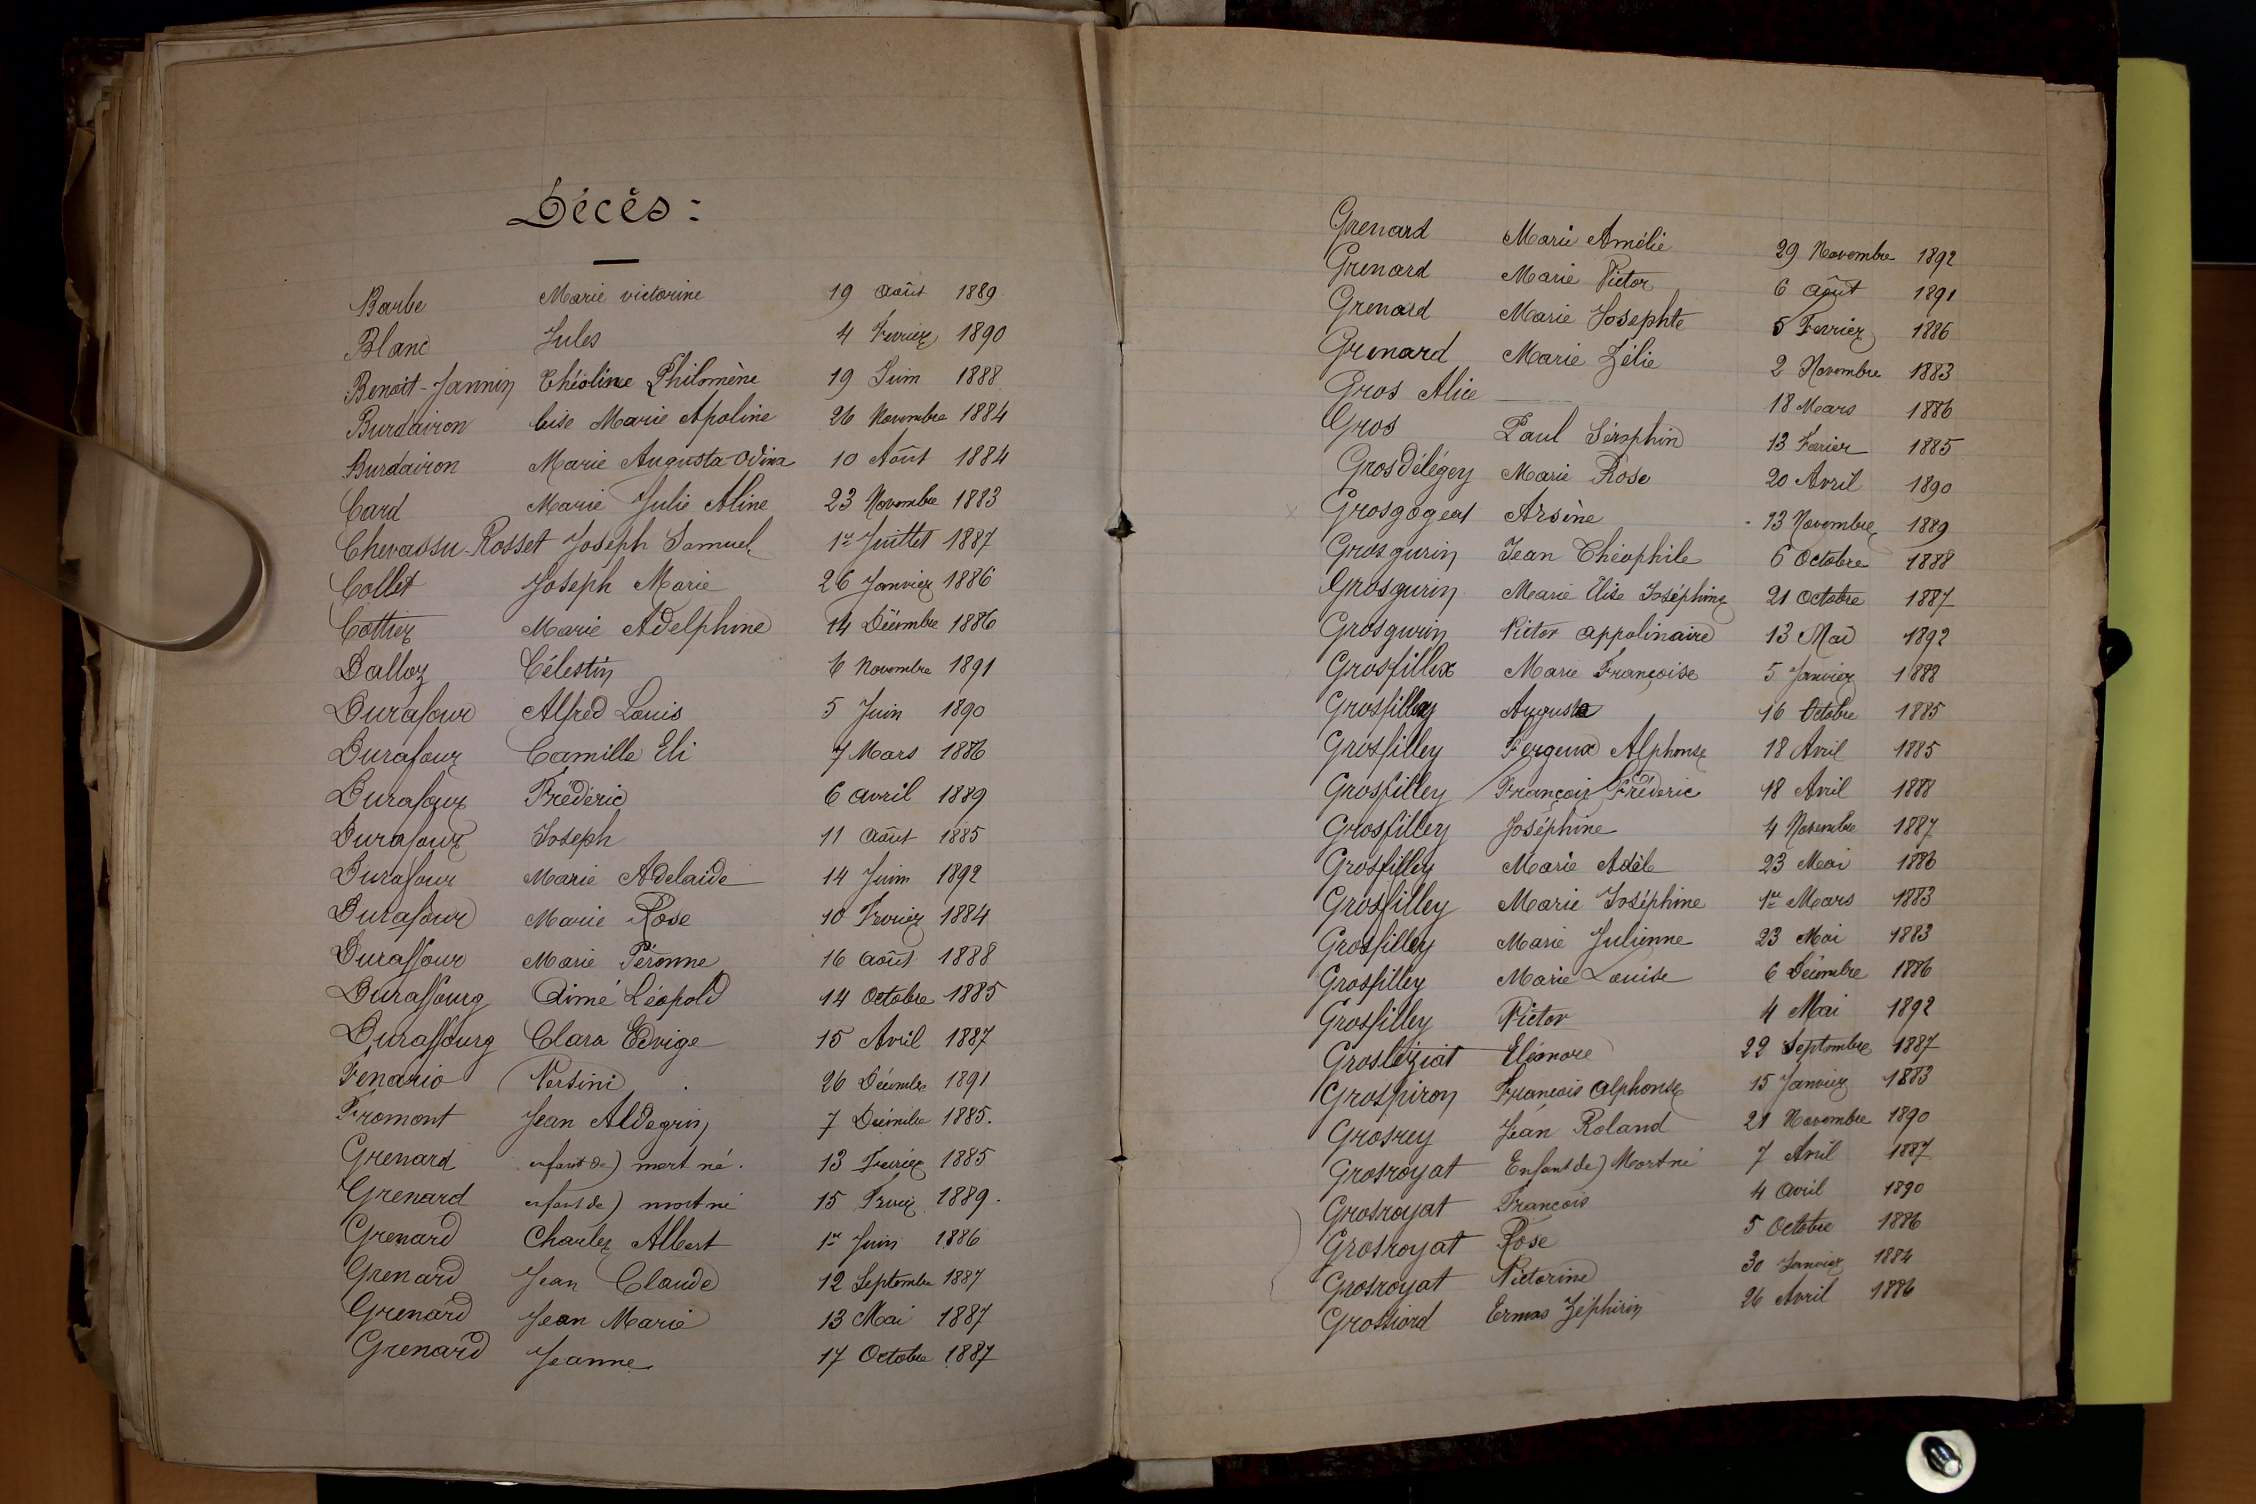 Décès :
Barbe Marie victorine 19 Août 1889
Blanc Jules 4 Fevrier 1890
Benoit-Jannin Théoline Philomène 19 Juin 1888
Burdairon Lise Marie Apoline 26 Novembre 1884
Burdairon Marie Augusta Odina 10 Août 1884
Card Marie Julie Aline 23 Novembre 1883
Chevassu-Rosset Joseph Samuel 1er Juillet 1887
Collet Joseph Marie 26 Janvier 1886
Cottier Marie Adelphine 14 Décembre 1886
Dalloz Célestin 6 Novembre 1891
Durafour Alfred Louis 5 Juin 1890
Durafour Camille Eli 7 Mars 1886
Durafour Frédéric 6 avril 1889
Durafour Joseph 11 août 1885
Durafour Marie Adelaide 14 Juin 1892
Durafour Marie Rose 10 Fevrier 1884
Duraffour Marie Péronne 16 août 1888
Duraffourg Aimé Léopold 14 Octobre 1885
Duraffourg Clara Edvige 15 Avril 1887
Fenario Versini 26 Décembre 1891
Fromont Jean Aldegrin 7 Décembre 1885.
Grenard enfant de) mort né. 13 Fevrier 1885
Grenard enfant de) mort né 15 Fevrier 1889.
Grenard Charles Albert 1er Juin 1886
Grenard Jean Claude 12 Septembre 1887
Grenard Jean Marie 13 Mai 1887
Grenard Jeanne 17 Octobre 1887
Grenard Marie Amélie 29 Novembre 1892
Grenard Marie Victor 6 août 1891
Grenard Marie Josephte 5 Fevrier 1886
Grenard Marie Zélie 2 Novembre 1883
Gros Alice 18 Mars 1886
Gros Paul Séraphin 13 Fevrier 1885
Grosdélégey Marie Rose 20 Avril 1890
Grosgogeat Arsène 13 Novembre 1889
Grosgurin Jean Théophile 6 Octobre 1888
Grosgurin Marie Elise Joséphine 21 Octobre 1887
Grosgurin Victor Appolinaire 13 Mai 1892
Grosfillex Marie Françoise 5 Janvier 1888
Grosfilley Augusta 16 Octobre 1885
Grosfilley Fergeux Alphonse 18 Avril 1885
Grosfilley François Fréderic 18 Avril 1888
Grosfilley Joséphine 4 Novembre 1887
Grosfilley Marie Adèle 23 Mai 1886
Grosfilley Marie Joséphine 1er Mars 1883
Grosfilley Marie Julienne 23 Mai 1883
Grosfilley Marie Louise 6 Décembre 1886
Grosfilley Victor 4 Mai 1892
Grosléziat Eléonore 22 Septembre 1887
Grospiron François Alphonse 15 Janvier 1883
Grosrey Jean Roland 21 Novembre 1890
Grosroyat Enfant de) Mort né 7 Avril 1887
Grosroyat François 4 avril 1890
Grosroyat Rose 5 Octobre 1886
Grosroyat Victorine 30 Janvier 1884
Grossiord Ermas Zéphirin 26 Avril 1886